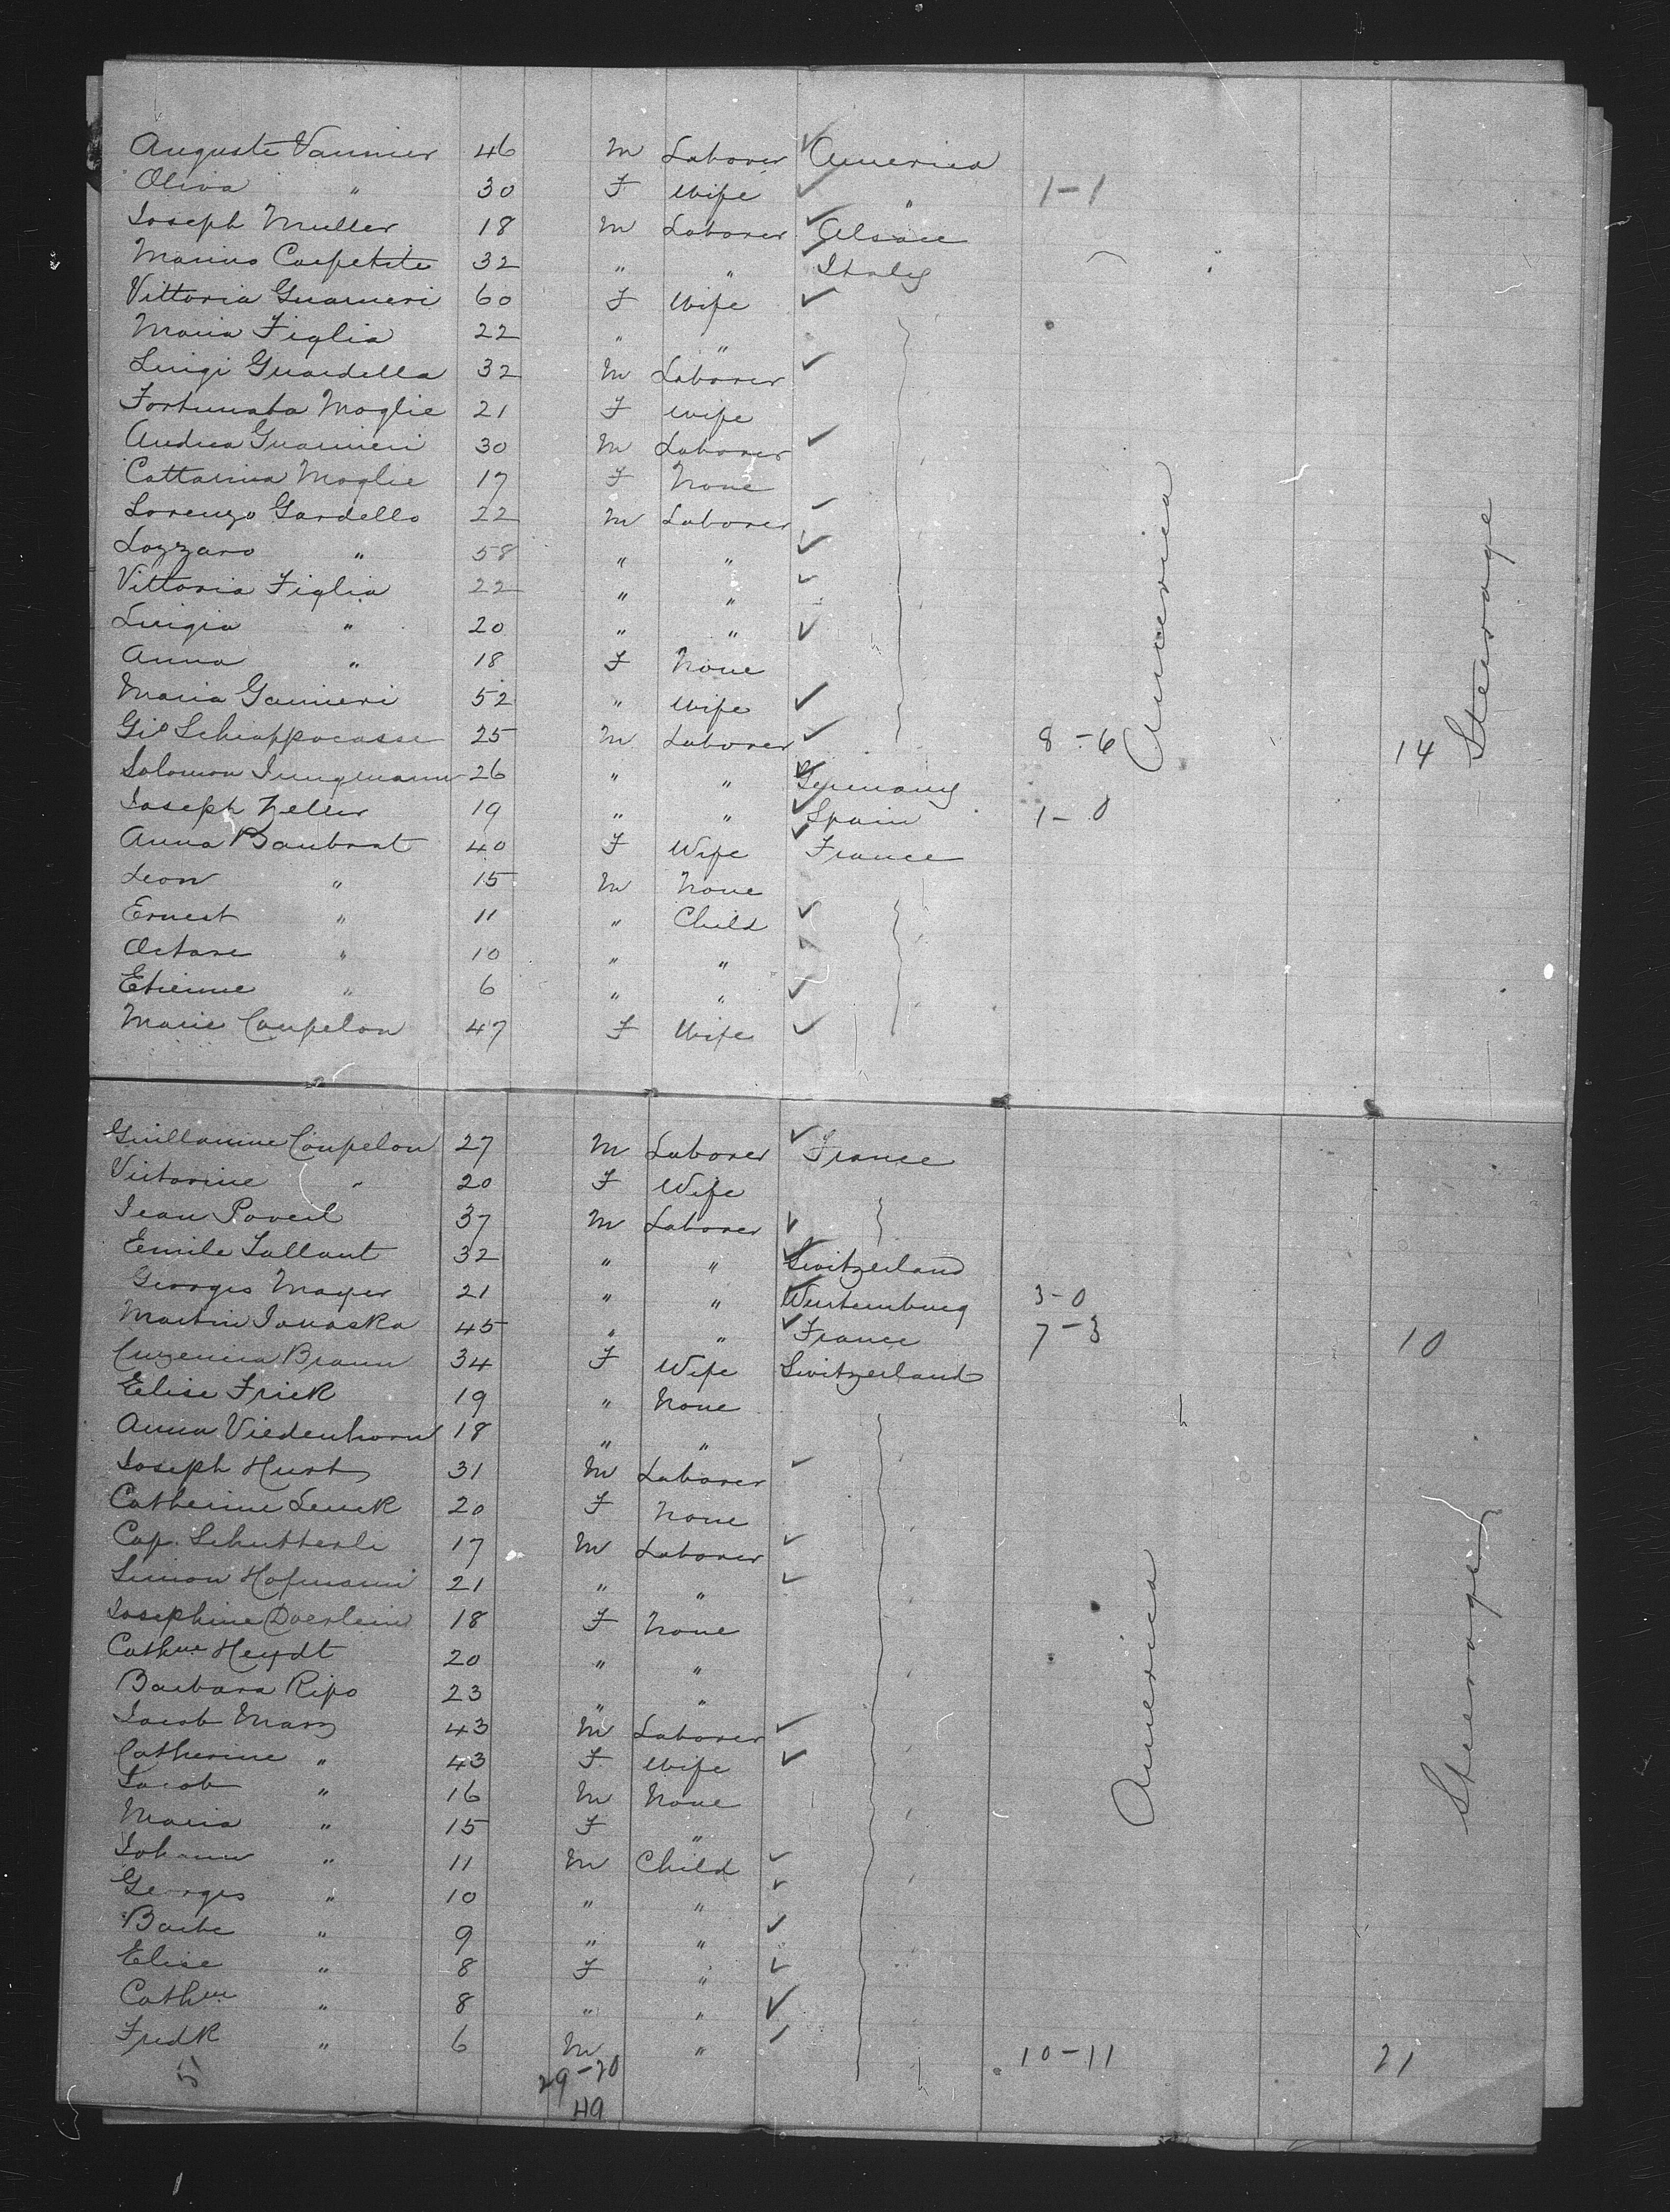 Auguste Vannier 46 M Laborer America
Oliva " 30 F Wife " 1-1
Joseph Muller 18 M Laborer Alsace
Marius 32 " " Italy
Vittoria Guarneri 60 F Wife
Maria Figlia 22 " "
Luigi Guardella 32 M Laborer
Fortunata Moglie 21 F Wife
Andrea Guarnieri 30 M Laborer
Cattarina Moglie 17 F None
Lorenzo Gardello 22 M Laborer
Lazzaro " 58 " "
Vittoria Figlia 22 " "
Luigia " 20 " "
Anna " 18 F None
Maria Garnieri 52 " Wife
Gio Schiappacasse 25 M Laborer 8-6 America 14 Steerage
Solomon Jungmann 26 " " Germany
Joseph Zeller 19 " " Spain 1-0
Anna Baubrat 40 F Wife France
Leon " 15 M None
Ernest " 11 " Child
Octave " 10 " "
Etienne " 6 " "
Marie Coupelon 47 F Wife
Guillaume Coupelon 27 M Laborer France
Victorine " 20 F Wife
Jean Poveil 37 M Laborer
Emile Lallant 32 " " Switzerland
Georges Mayer 21 " " Wurtemburg 3-0
Martin Janaska 45 " " France 7-3 10
Eugenia Braun 34 F Wife Switzerland
Elise Frick 19 " None
Anna Viedenhorn 18 " "
Joseph Hurt 31 M Laborer
Catherine Lenck 20 F None
Cap. Schutterli 17 M Laborer
Simon Hofmann 21 " "
Josephine Doerlein 18 F None
Cathne Heydt 20 " "
Barbara Ripo 23 " "
Jacob Marz 43 M Laborer
Catherine " 43 F Wife
Jacob " 16 M None
Maria " 15 F "
Johann " 11 M Child
Georges " 10 " "
Barbe " 9 " "
Elise " 8 F "
Cathne " 8 " "
Fredk " 6 M " 10-11 America 21 Steerage
29-20
49